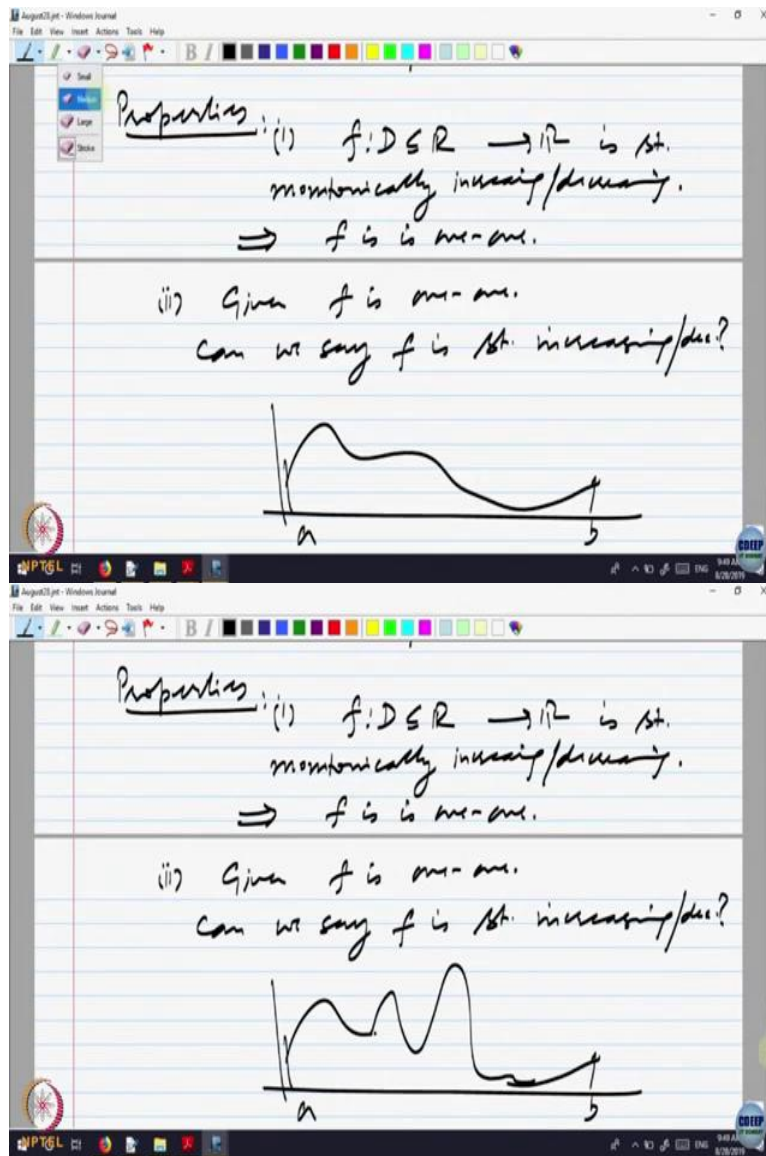 August28.jnt - Windows Journal
File Edit View Insert Actions Tools Help
B I
Small
Medium
Large
Stroke
Properties: (i) f: D ⊆ R → R is st.
monotonically increasing/decreasing.
⇒ f is is one-one.
(ii) Given f is one-one.
Can we say f is st. increasing/dec.?
a b
NPTEL
CDEEP
ENG
9:49 AM
8/28/2019
August28.jnt - Windows Journal
File Edit View Insert Actions Tools Help
B I
Properties: (i) f: D ⊆ R → R is st.
monotonically increasing/decreasing.
⇒ f is is one-one.
(ii) Given f is one-one.
Can we say f is st. increasing/dec.?
a b
NPTEL
CDEEP
ENG
9:49 AM
8/28/2019